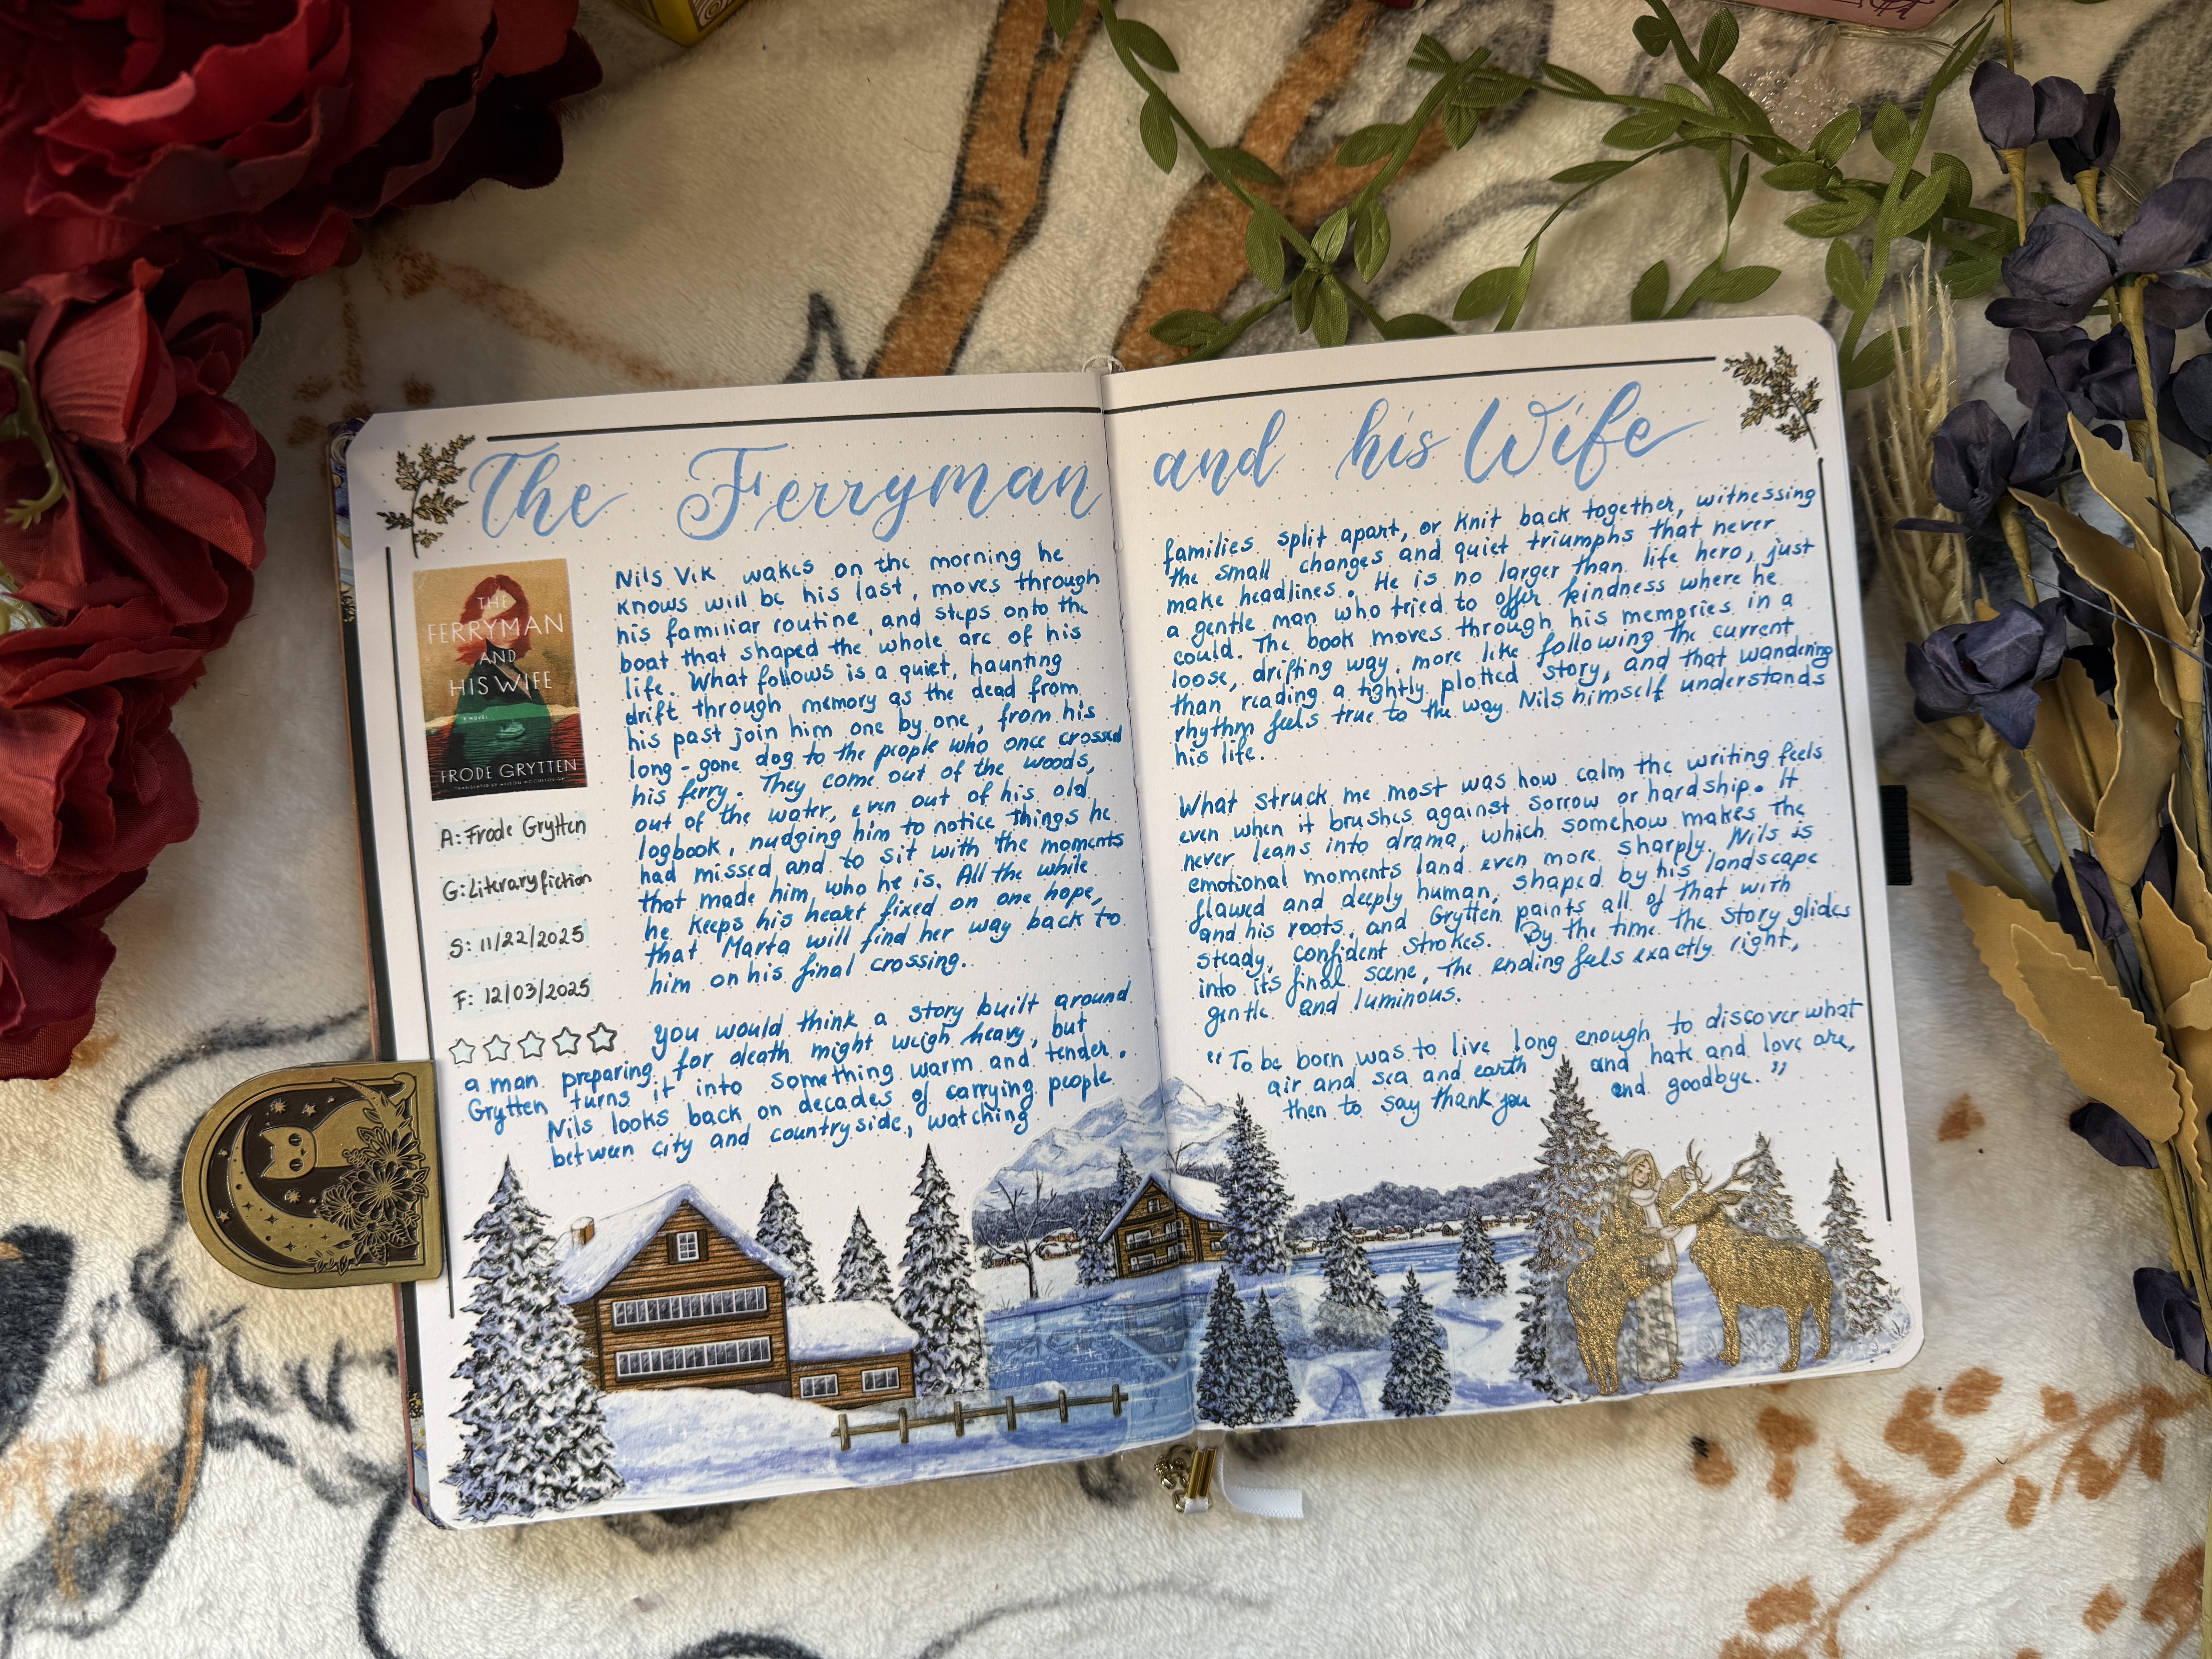 The Ferryman and his Wife
THE
FERRYMAN
AND
HIS WIFE
A NOVEL
FRODE GRYTTEN
A: Frode Grytten
G: Literary fiction
S: 11/22/2025
F: 12/03/2025
Nils Vik wakes on the morning he
knows will be his last, moves through
his familiar routine, and steps onto the
boat that shaped the whole arc of his
life. What follows is a quiet, haunting
drift through memory as the dead from
his past join him one by one, from his
long-gone dog to the people who once crossed
his ferry. They come out of the woods,
out of the water, even out of his old
logbook, nudging him to notice things he
had missed and to sit with the moments
that made him who he is. All the while
he keeps his heart fixed on one hope,
that Marta will find her way back to
him on his final crossing.
you would think a story built around
a man preparing for death might weigh heavy, but
Grytten turns it into something warm and tender.
Nils looks back on decades of carrying people
between city and countryside, watching
families split apart, or knit back together, witnessing
the small changes and quiet triumphs that never
make headlines. He is no larger than life hero, just
a gentle man who tried to offer kindness where he
could. The book moves through his memories in a
loose, drifting way, more like following the current
than reading a tightly plotted story, and that wandering
rhythm feels true to the way Nils himself understands
his life.
What struck me most was how calm the writing feels
even when it brushes against sorrow or hardship. It
never leans into drama, which somehow makes the
emotional moments land even more sharply. Nils is
flawed and deeply human, shaped by his landscape
and his roots, and Grytten paints all of that with
steady, confident strokes. By the time the story glides
into its final scene, the ending feels exactly right,
gentle and luminous.
"To be born was to live long enough to discover what
air and sea and earth and hate and love are,
then to say thank you and goodbye."